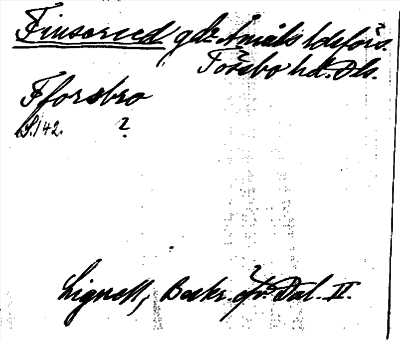 Finserud gde Åmåls ldsförs.
Tössbo hd. Dls.
Fforsbro
S.142. ?
Lignell, Beskr. öfv. Dal. II.